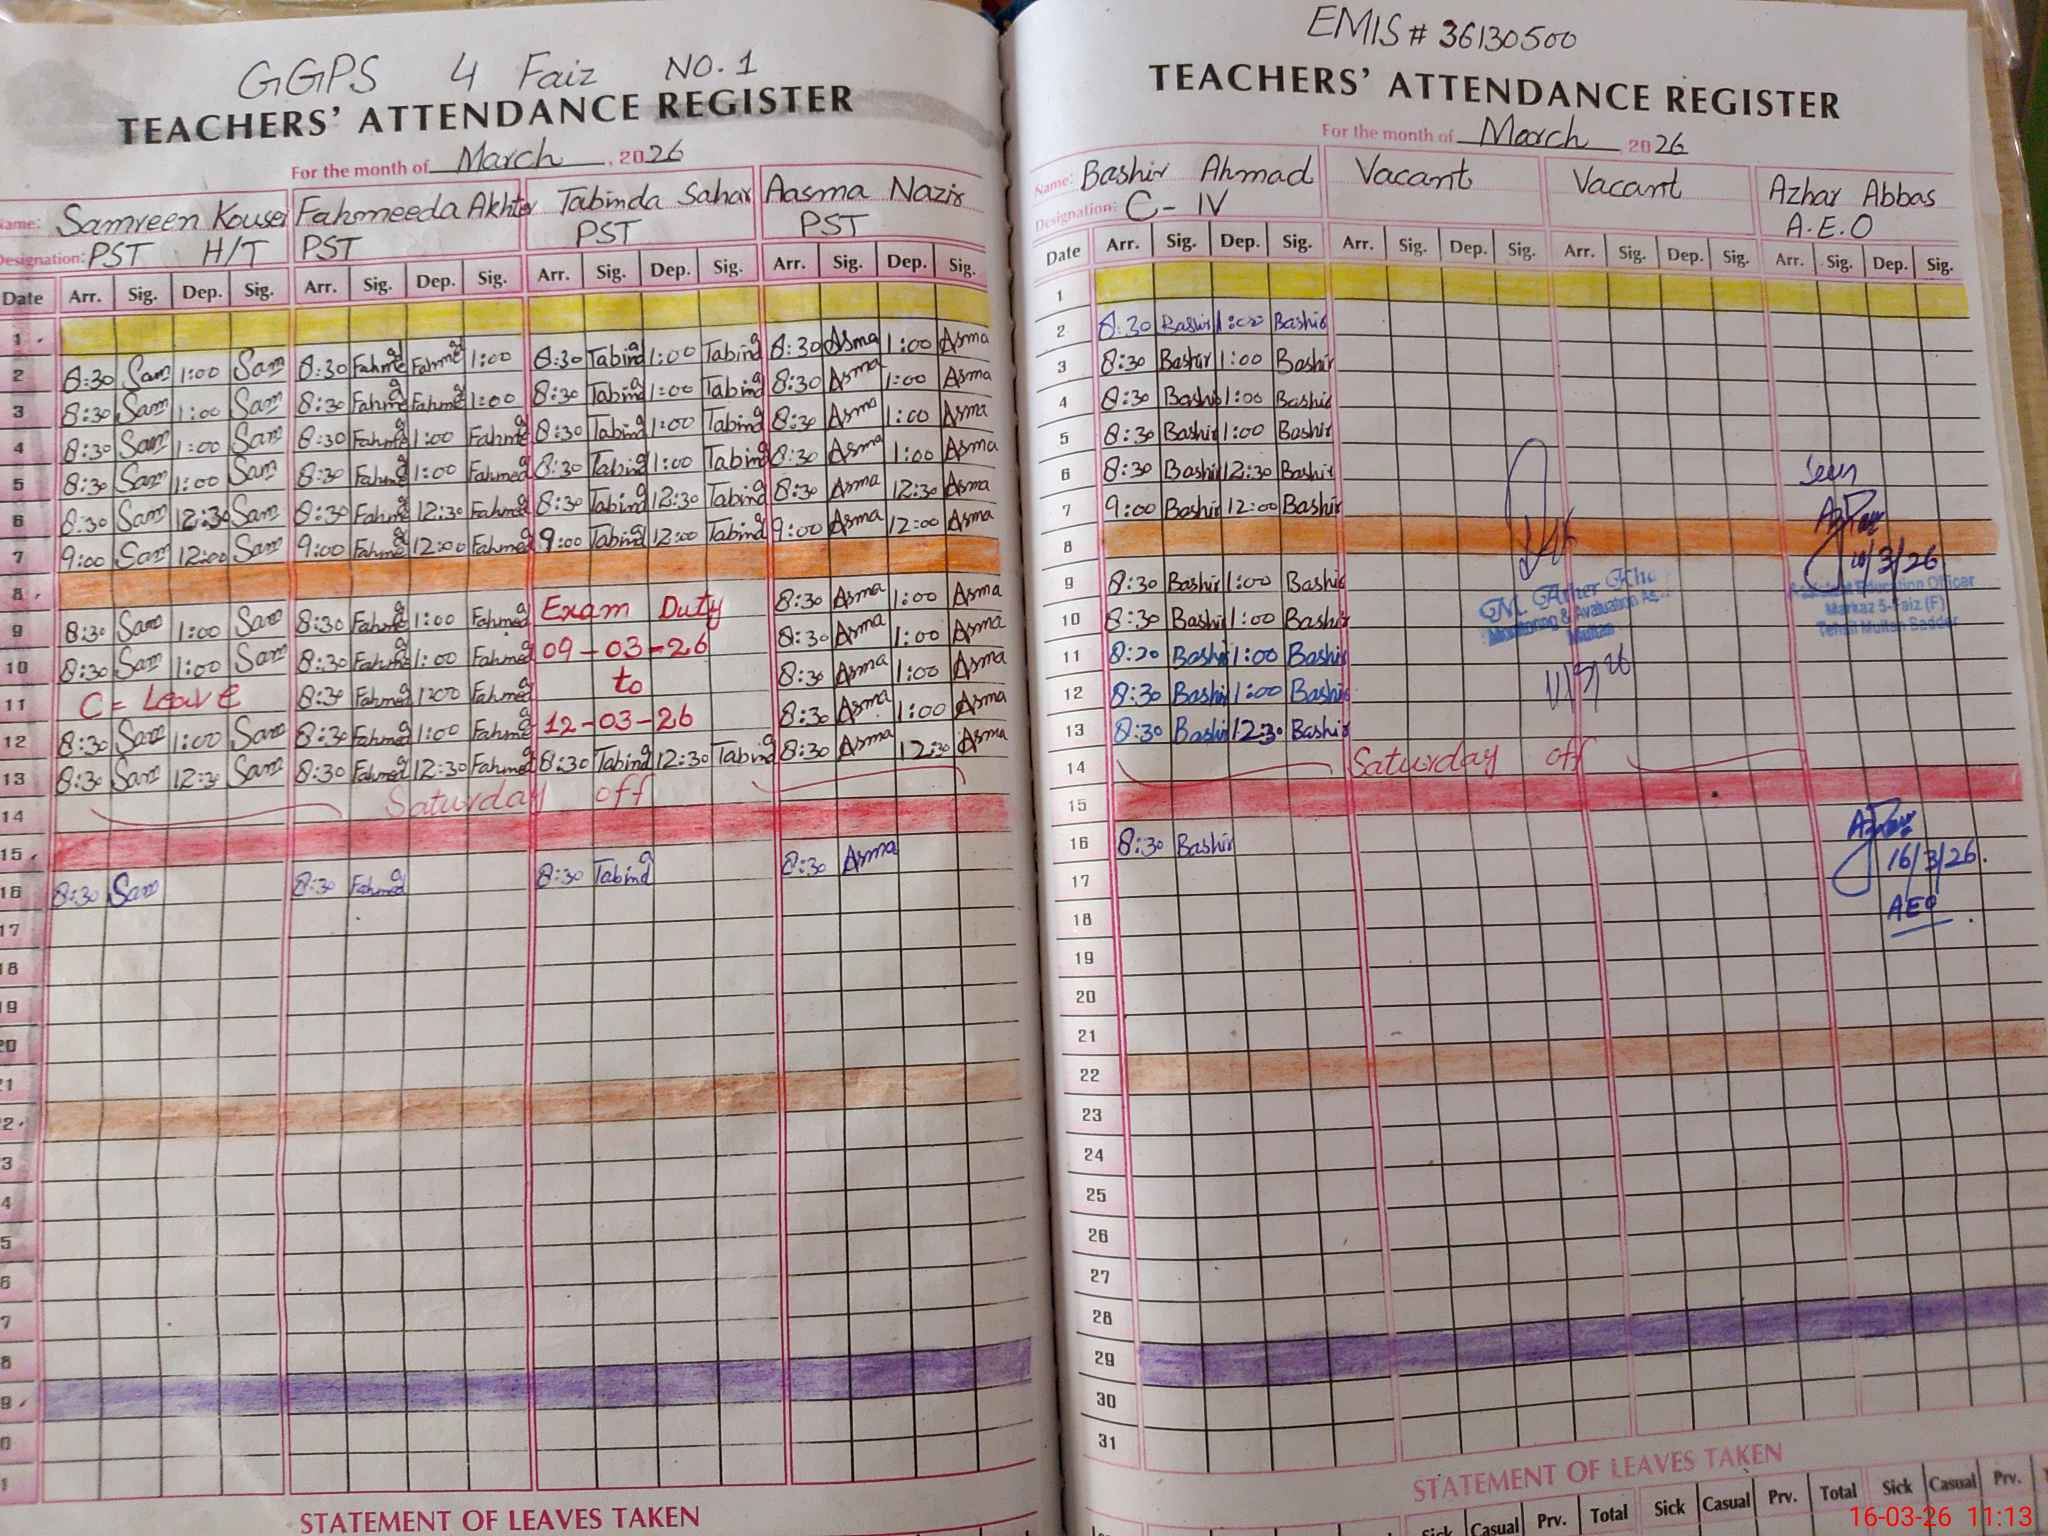 GGPS 4 Faiz NO.1
TEACHERS' ATTENDANCE REGISTER
For the month of March, 2026
Name: Samreen Kouser Fahmeeda Akhter Tabinda Sahar Aasma Nazir
Designation: PST H/T PST PST PST
Date Arr. Sig. Dep. Sig. Arr. Sig. Dep. Sig. Arr. Sig. Dep. Sig. Arr. Sig. Dep. Sig.
1
2 8:30 Sam 1:00 Sam 8:30 Fahmd Fahmd 1:00 8:30 Tabind 1:00 Tabind 8:30 Asma 1:00 Asma
3 8:30 Sam 1:00 Sam 8:30 Fahmd Fahmd 1:00 8:30 Tabind 1:00 Tabind 8:30 Asma 1:00 Asma
4 8:30 Sam 1:00 Sam 8:30 Fahmd 1:00 Fahmd 8:30 Tabind 1:00 Tabind 8:30 Asma 1:00 Asma
5 8:30 Sam 1:00 Sam 8:30 Fahmd 1:00 Fahmed 8:30 Tabind 1:00 Tabind 8:30 Asma 1:00 Asma
6 8:30 Sam 12:30 Sam 8:30 Fahmd 12:30 Fahmd 8:30 Tabind 12:30 Tabind 8:30 Asma 12:30 Asma
7 9:00 Sam 12:00 Sam 9:00 Fahmd 12:00 Fahmed 9:00 Tabind 12:00 Tabind 9:00 Asma 12:00 Asma
8
9 8:30 Sam 1:00 Sam 8:30 Fahmd 1:00 Fahmed Exam Duty 8:30 Asma 1:00 Asma
10 8:30 Sam 1:00 Sam 8:30 Fahmd 1:00 Fahmed 09-03-26 8:30 Asma 1:00 Asma
11 C= Leave 8:30 Fahmd 1:00 Fahmed to 8:30 Asma 1:00 Asma
12 8:30 Sam 1:00 Sam 8:30 Fahmd 1:00 Fahmd 12-03-26 8:30 Asma 1:00 Asma
13 8:30 Sam 12:30 Sam 8:30 Fahmd 12:30 Fahmd 8:30 Tabind 12:30 Tabind 8:30 Asma 12:30 Asma
14 Saturday off
15
16 8:30 Sam 8:30 Fahmd 8:30 Tabind 8:30 Asma
17
18
19
20
21
22
3
4
5
6
7
8
9
0
1
STATEMENT OF LEAVES TAKEN
EMIS # 36130500
TEACHERS' ATTENDANCE REGISTER
For the month of March, 2026
Name: Bashir Ahmad Vacant Vacant Azhar Abbas
Designation: C-IV A.E.O
Date Arr. Sig. Dep. Sig. Arr. Sig. Dep. Sig. Arr. Sig. Dep. Sig. Arr. Sig. Dep. Sig.
1
2 8:30 Bashir 1:00 Bashir
3 8:30 Bashir 1:00 Bashir
4 8:30 Bashir 1:00 Bashir
5 8:30 Bashir 1:00 Bashir
6 8:30 Bashir 12:30 Bashir Seen
7 9:00 Bashir 12:00 Bashir
8 10/3/26
9 8:30 Bashir 1:00 Bashir Assistant Education Officer
10 8:30 Bashir 1:00 Bashir Monitoring & Markaz 5-Faiz (F)
Multan Tehsil Multan Saddar
11 8:20 Bashir 1:00 Bashir
12 8:30 Bashir 1:00 Bashir 11/3/26
13 8:30 Bashir 12:30 Bashir
14 Saturday off
15
16 8:30 Bashir 16/3/26.
17
18 AEO
19
20
21
22
23
24
25
26
27
28
29
30
31
STATEMENT OF LEAVES TAKEN
Sick Casual Prv. Total Sick Casual Prv. Total Sick Casual Prv.
16-03-26 11:13